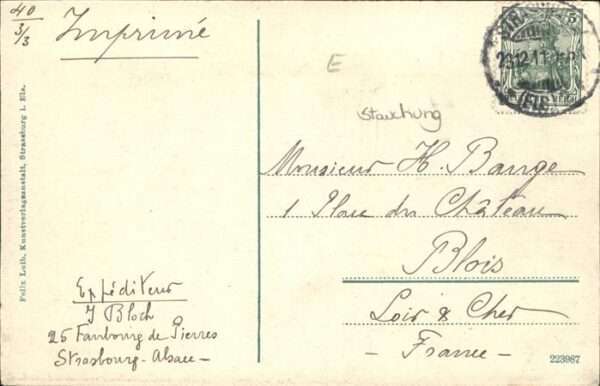 40
3/3
Imprimé
E
Stauchung
STRASSBURG
23.12.11
(ELS)
5
Monsieur H. Bange
1 Place du Château
Blois
Loir & Cher
- France -
Expéditeur
J Bloch
25 Faubourg de Pierres
Strasbourg - Alsace -
Felix Luib, Kunstverlagsanstalt, Strassburg i. Els.
223987